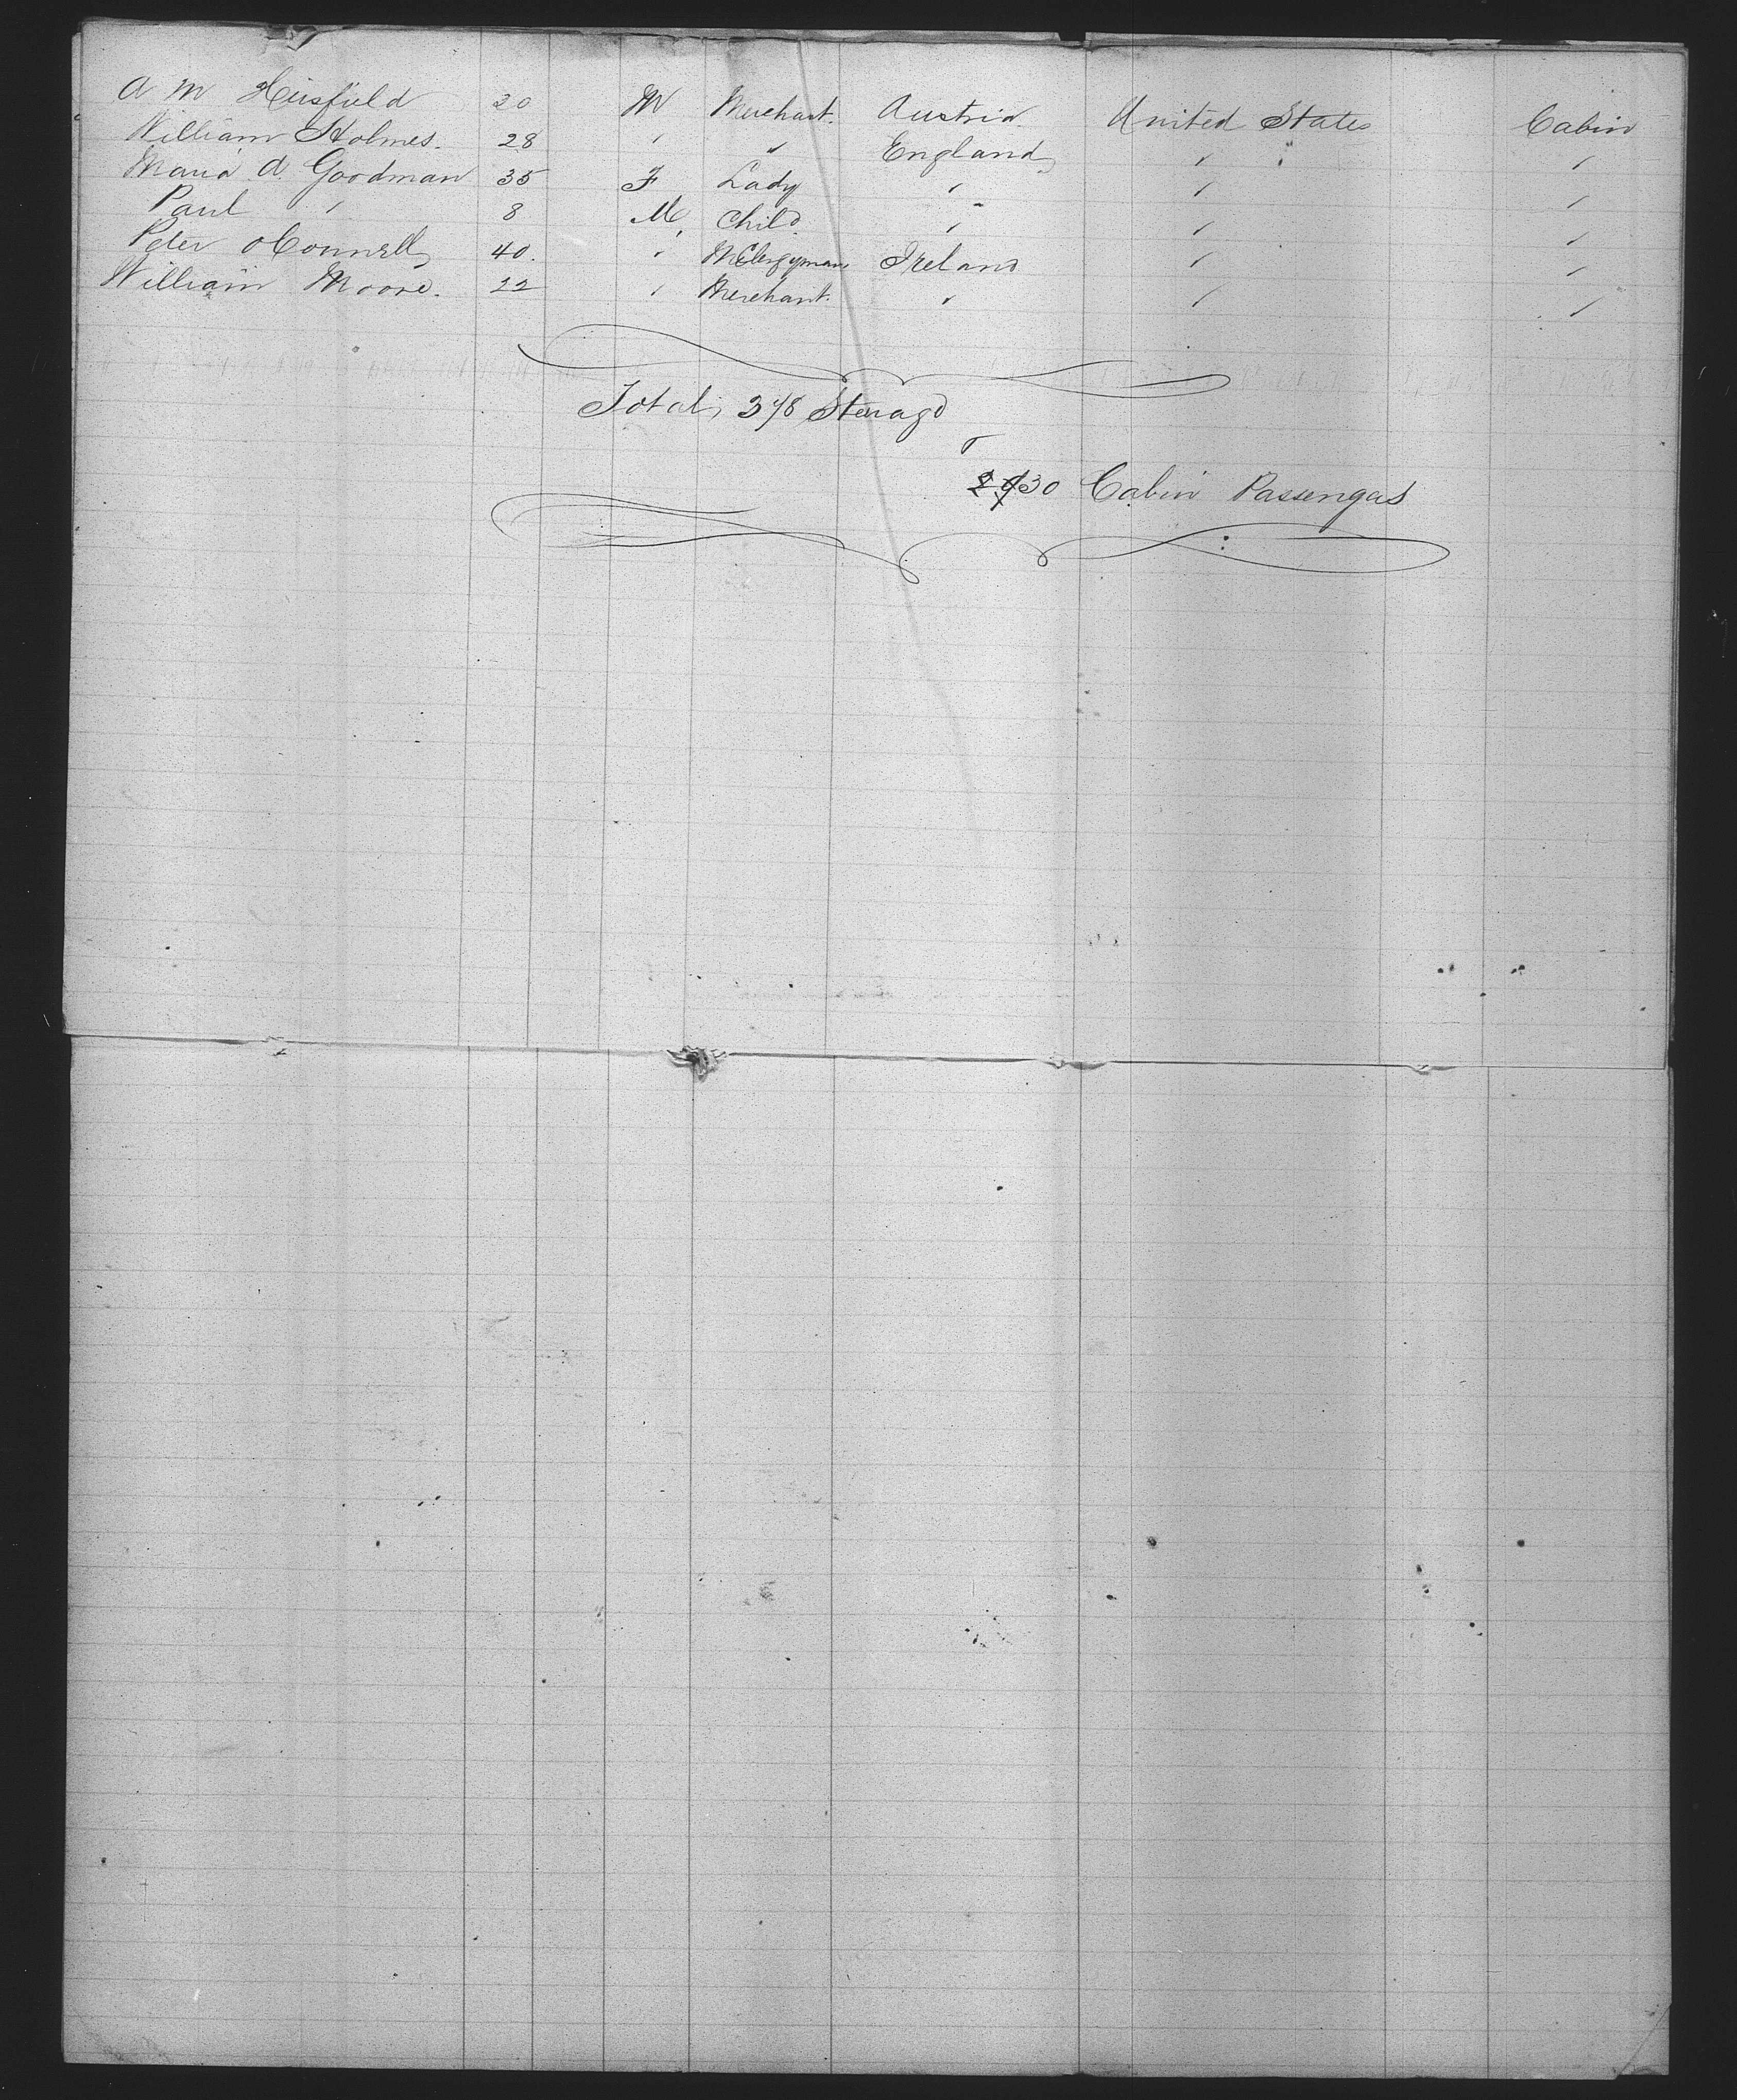 A M Heisfield 20 M Merchant. Austria United States Cabin
William Holmes. 28 " " England " " "
Maria A. Goodman 35 F Lady " " "
Paul " 8 M Child. " " "
Peter OConnell 40. " Clergyman Ireland " "
William Moore. 22 " Merchant. " " "
Total, 348 Steerage
30 Cabin Passengers